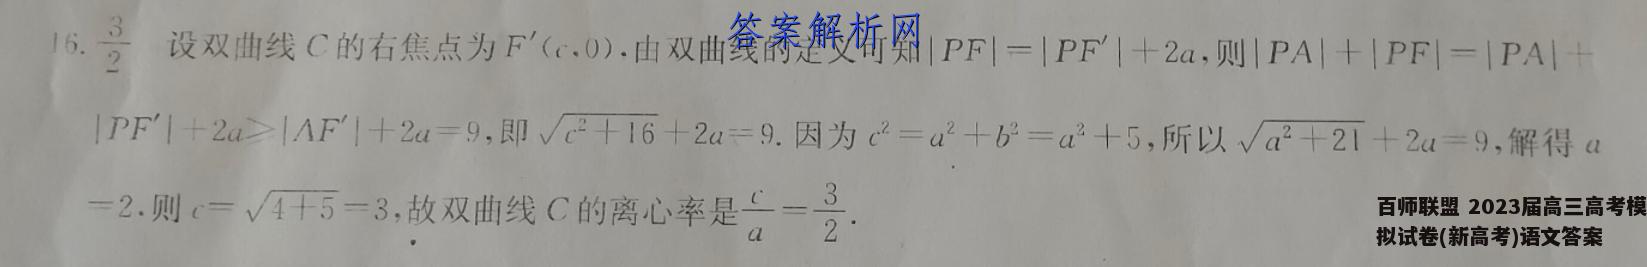 答案解析网
16. 3/2 设双曲线C的右焦点为F′(c,0),由双曲线的定义可知|PF|=|PF′|+2a,则|PA|+|PF|=|PA|+
|PF′|+2a≥|AF′|+2a=9,即√(c²+16)+2a=9.因为c²=a²+b²=a²+5,所以√(a²+21)+2a=9,解得a
=2.则c=√(4+5)=3,故双曲线C的离心率是c/a=3/2.
百师联盟 2023届高三高考模
拟试卷(新高考)语文答案